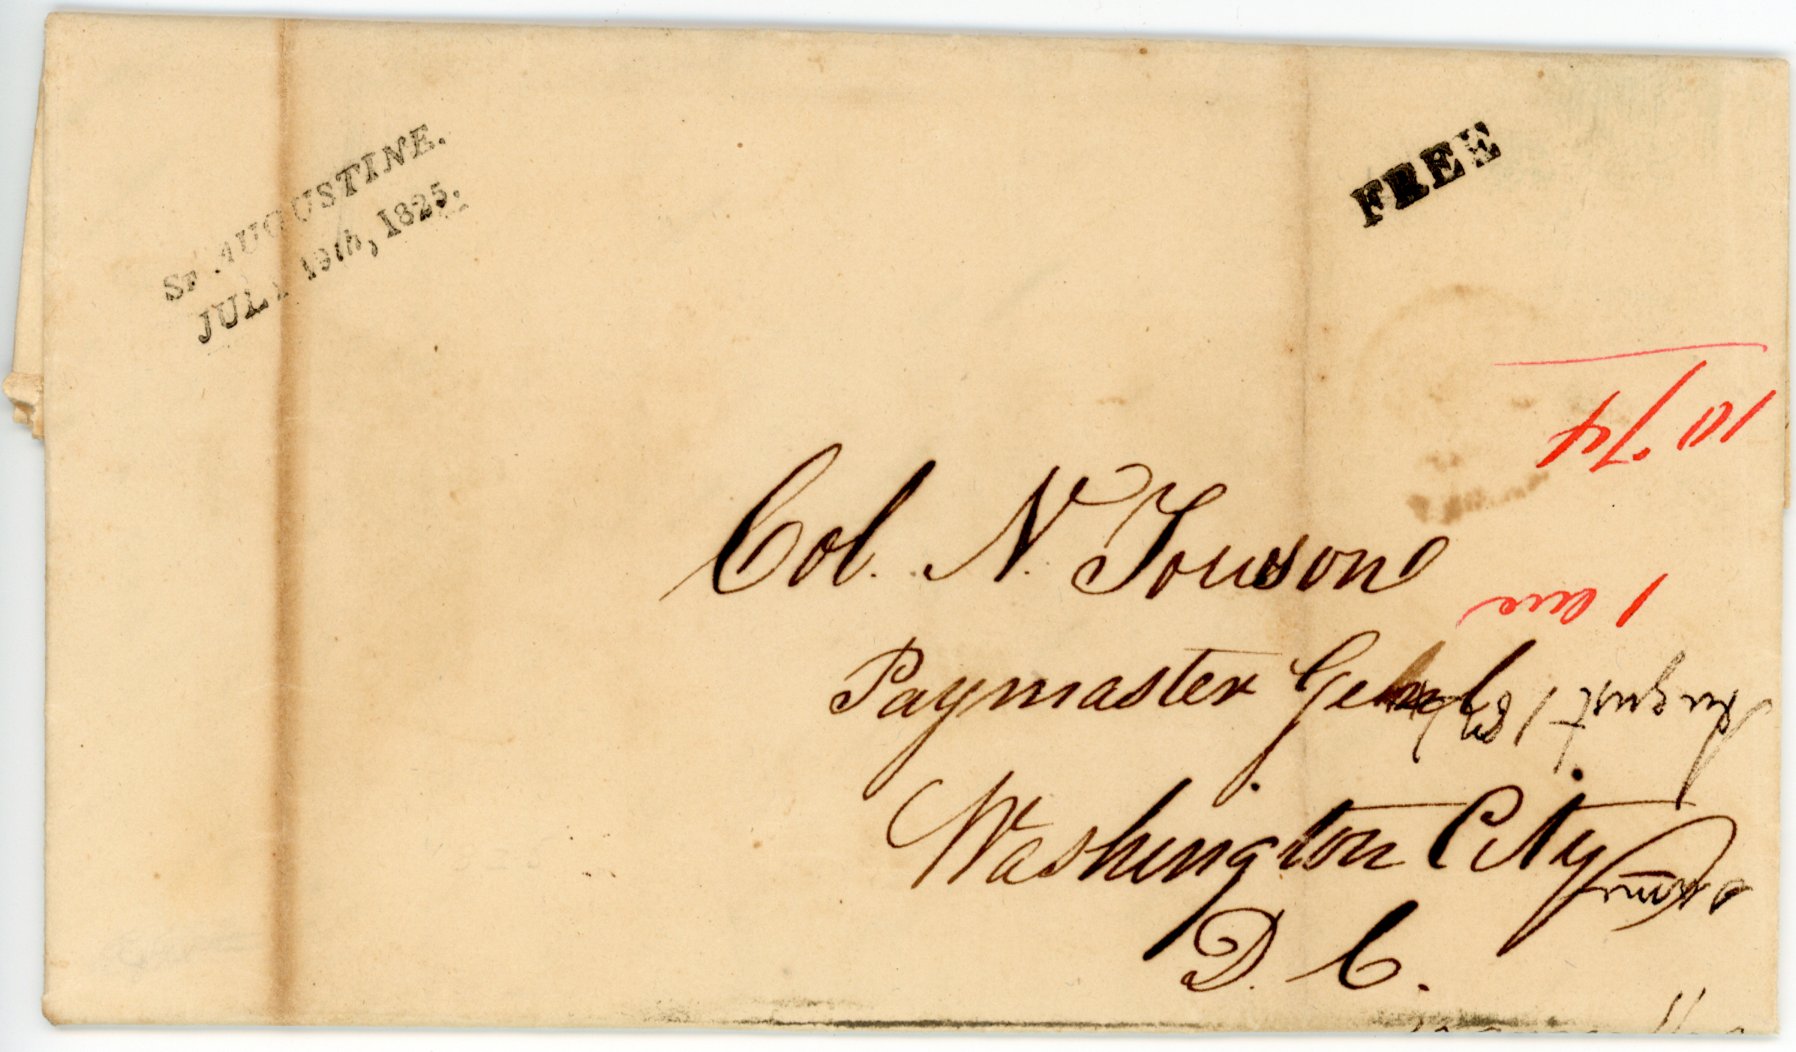 St. AUGUSTINE.
JULY 19th, 1825.
FREE
Col. N. Towson
Paymaster Genl.
Washington City
D. C.
August
1074